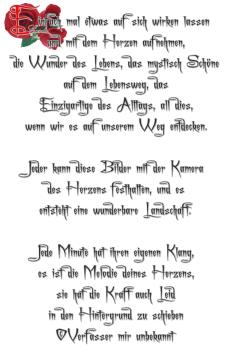 Einfach mal etwas auf sich wirken lassen
und mit dem Herzen aufnehmen,
die Wunder des Lebens, das mystisch Schöne
auf dem Lebensweg, das
Einzigartige des Alltags, all dies,
wenn wir es auf unserem Weg entdecken.
Jeder kann diese Bilder mit der Kamera
des Herzens festhalten, und es
entsteht eine wunderbare Landschaft.
Jede Minute hat ihren eigenen Klang,
es ist die Melodie deines Herzens,
sie hat die Kraft auch Leid
in den Hintergrund zu schieben
©Verfasser mir unbekannt